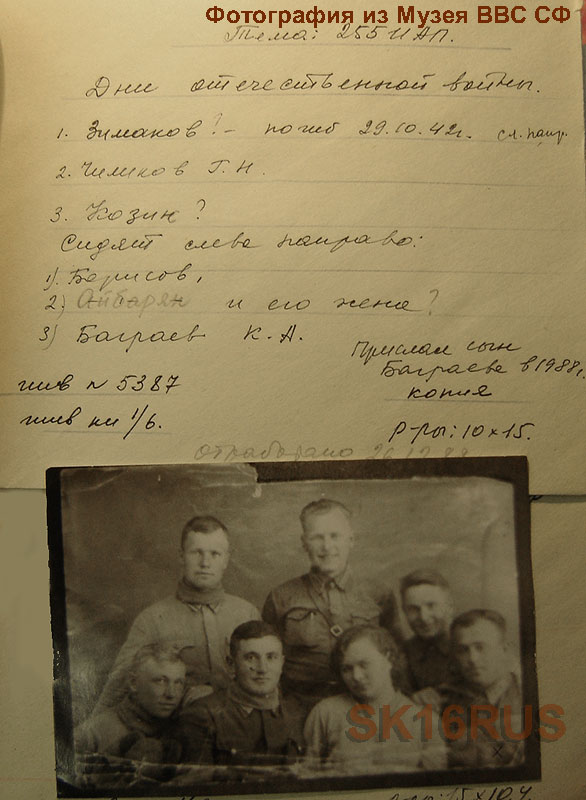 Фотография из Музея ВВС СФ
Тема: 255 ИАП.
Дни отечественной войны.
1. Зимаков? - погиб 29.10.42г. сл. напр.
2. Чиликов Г.Н.
3. Козин?
Сидят слева направо:
1) Борисов,
2) Айбарян и его жена?
3) Баграев К.А.
Прислал сын
Баграева в 1988г.
копия
инв № 5387
инв кн 1/6.
Р-ры: 10 х 15.
отработано
SK16RUS